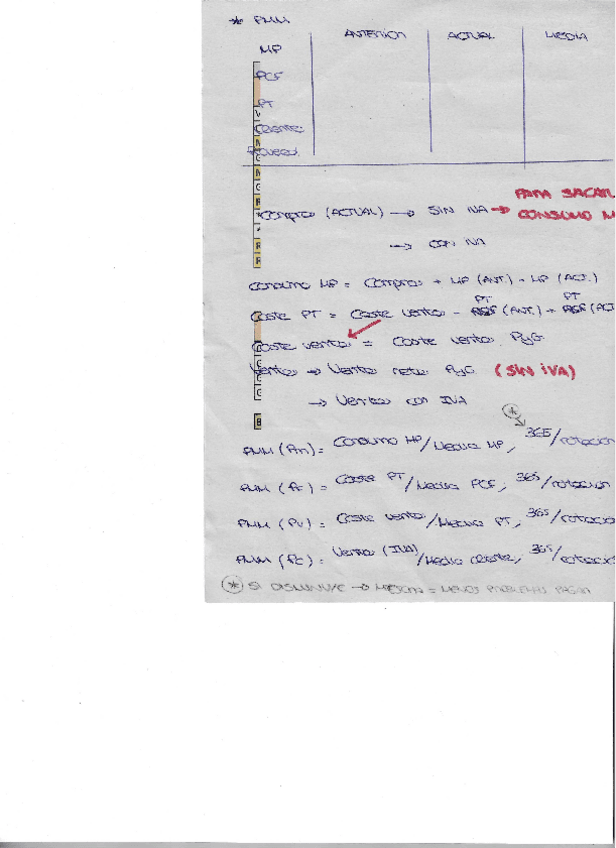 * PMM
ANTERIOR ACTUAL MEDIA
MP
PCF
PT
Cliente
Proveed.
*Compras (ACTUAL) → SIN IVA → PARA SACAR
CONSUMO M
→ CON IVA
Consumo MP = Compras + MP (ANT.) - MP (ACT.)
PT PT
Coste PT = Coste ventas - (ANT.) + (ACT
Coste ventas = Coste ventas PyG
Ventas → Ventas neta PyG (SIN IVA)
→ Ventas con IVA
*
PMM (Am) = Consumo MP/Media MP, 365/rotacion
PMM (Fc) = Coste PT/Media PCF, 365/rotacion
PMM (Pv) = Coste ventas/Media PT, 365/rotacion
PMM (Pc) = Ventas (IVA)/Media cliente, 365/rotacion
* SI DISMINUYE → MEJORA = MENOS PROBLEMAS PAGAR